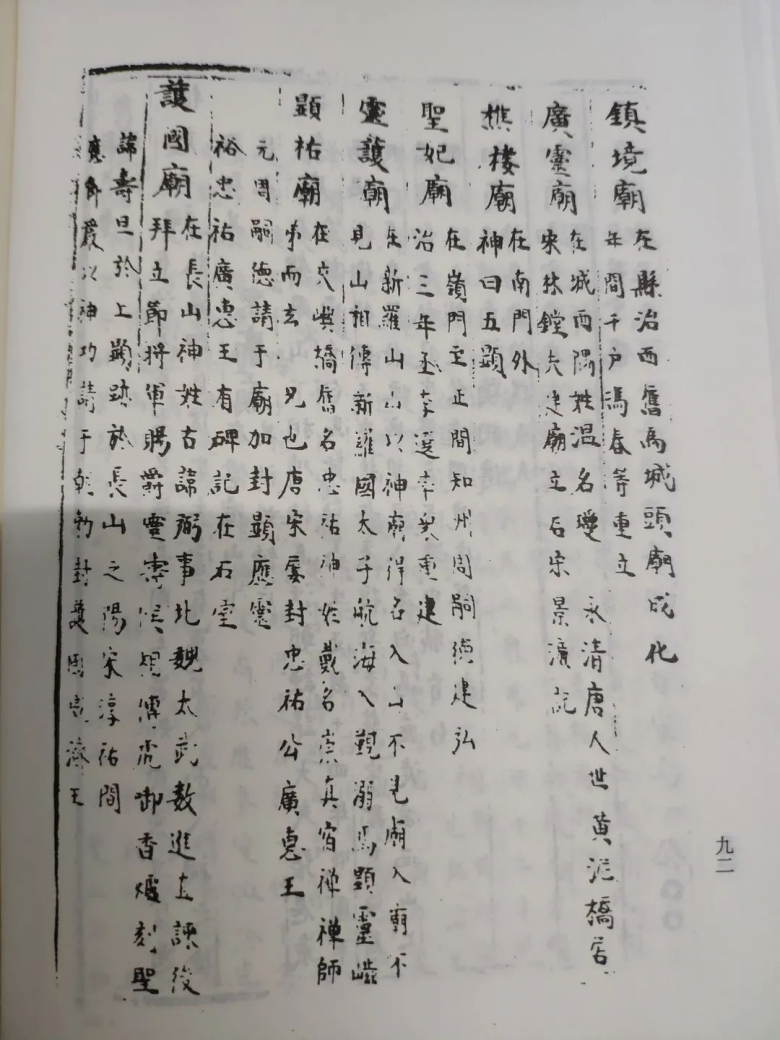 鎮境廟在縣治西舊為城頭廟成化
年間千戶馮春等重立
廣靈廟在城西隅姓温名瓊永清唐人世黄泥橋居
宋林鏜夫建廟立石宋景濂記
樵楼廟在南門外
神曰五顯
聖妃廟在嶺門至正間知州周嗣德建弘
治三年丞李選率衆重建
靈護廟在新羅山山以神廟得名入山不見廟入廟不
見山相傳新羅國太子航海入覲溺焉顯靈
顯祐廟在交嶼橋舊名忠祐神姓戴名崇真宿禅禅師
弟而玄兄也唐宋屡封忠祐公廣惠王
元周嗣德請于廟加封顯應靈
裕忠祐廣惠王有碑記在石室
護國廟在長山神姓古諱弼事北魏太武数進直諫後
拜立節将軍賜爵靈壽侯傳虎御香爐刻聖
諱壽旦於上顯跡於長山之陽宋淳祐間
以神功請于朝勅封護國濟王
九二